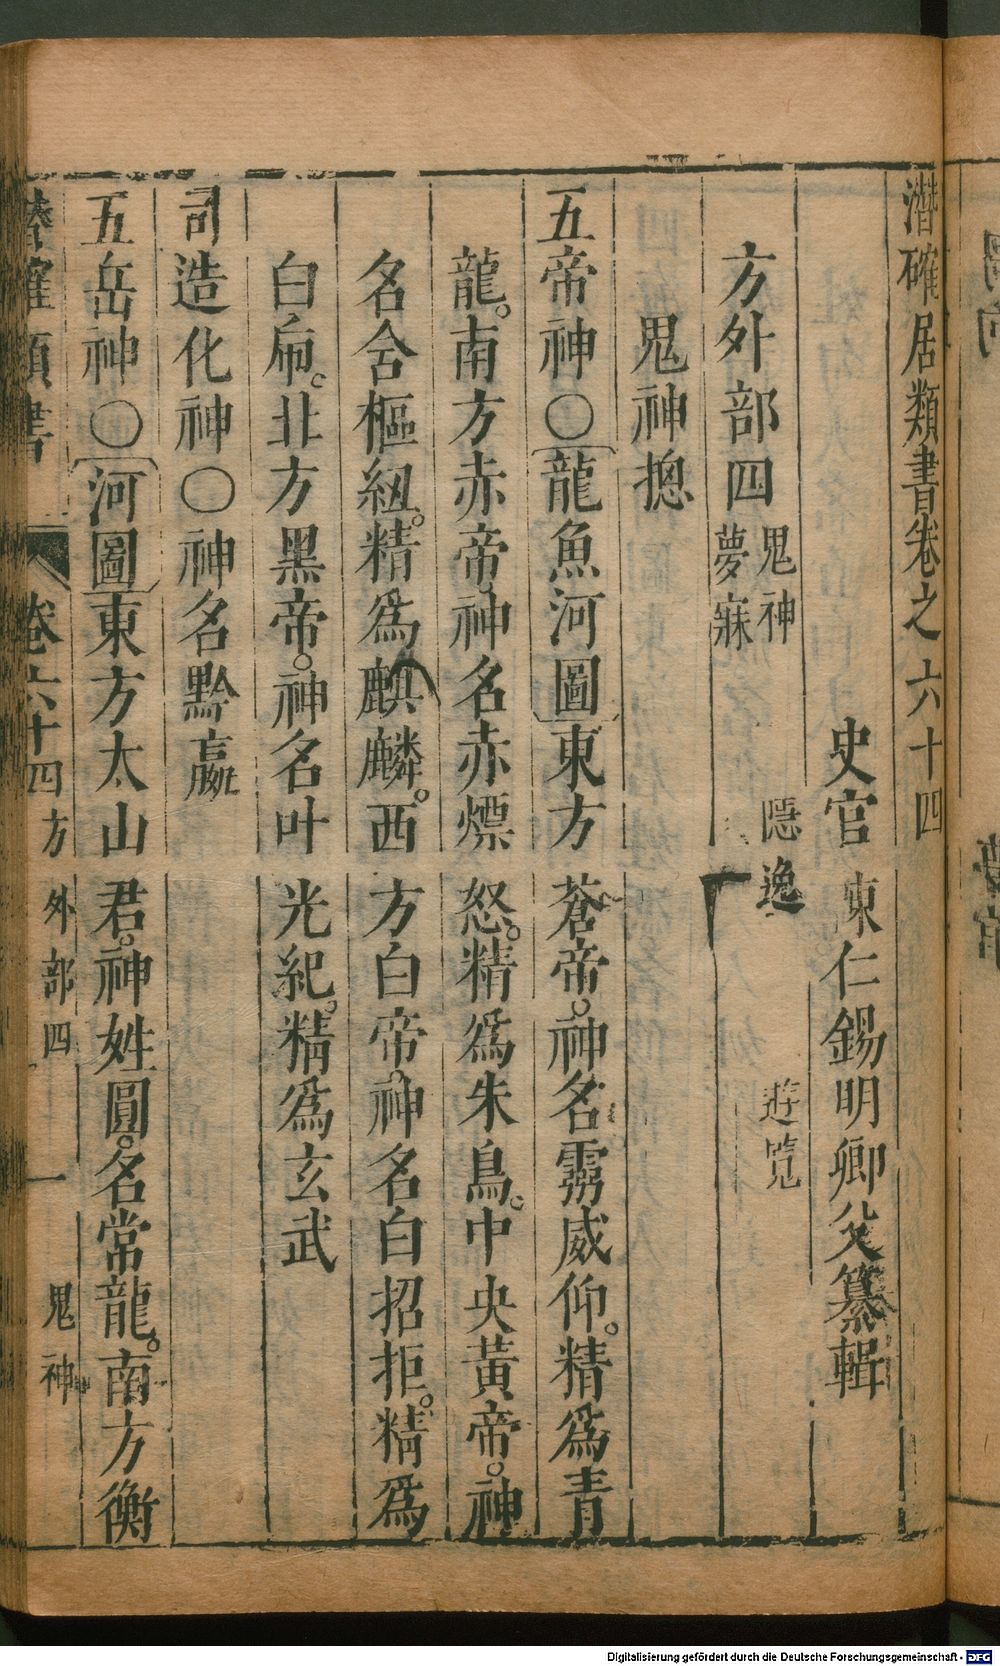 潛確居類書卷之六十四
史官陳仁錫明卿父纂輯
方外部四 鬼神 隱逸 遊覧 夢寐
鬼神摠
五帝神〇龍魚河圖東方蒼帝神名靈威仰精爲青
龍南方赤帝神名赤熛怒精爲朱鳥中央黃帝神
名含樞紐精爲麒麟西方白帝神名白招拒精爲
白虎北方黑帝神名叶光紀精爲玄武
司造化神〇神名黔嬴
五岳神〇河圖東方太山君神姓圓名常龍南方衡
潛確類書 卷六十四 方外部四 一 鬼神
Digitalisierung gefördert durch die Deutsche Forschungsgemeinschaft - DFG